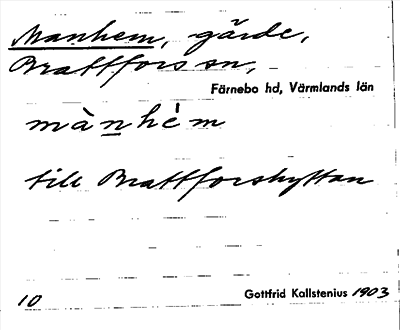 Manhem, gärde,
Brattfors sn,
Färnebo hd, Värmlands län
mànhèm
till Brattforshyttan
10
Gottfrid Kallstenius 1903